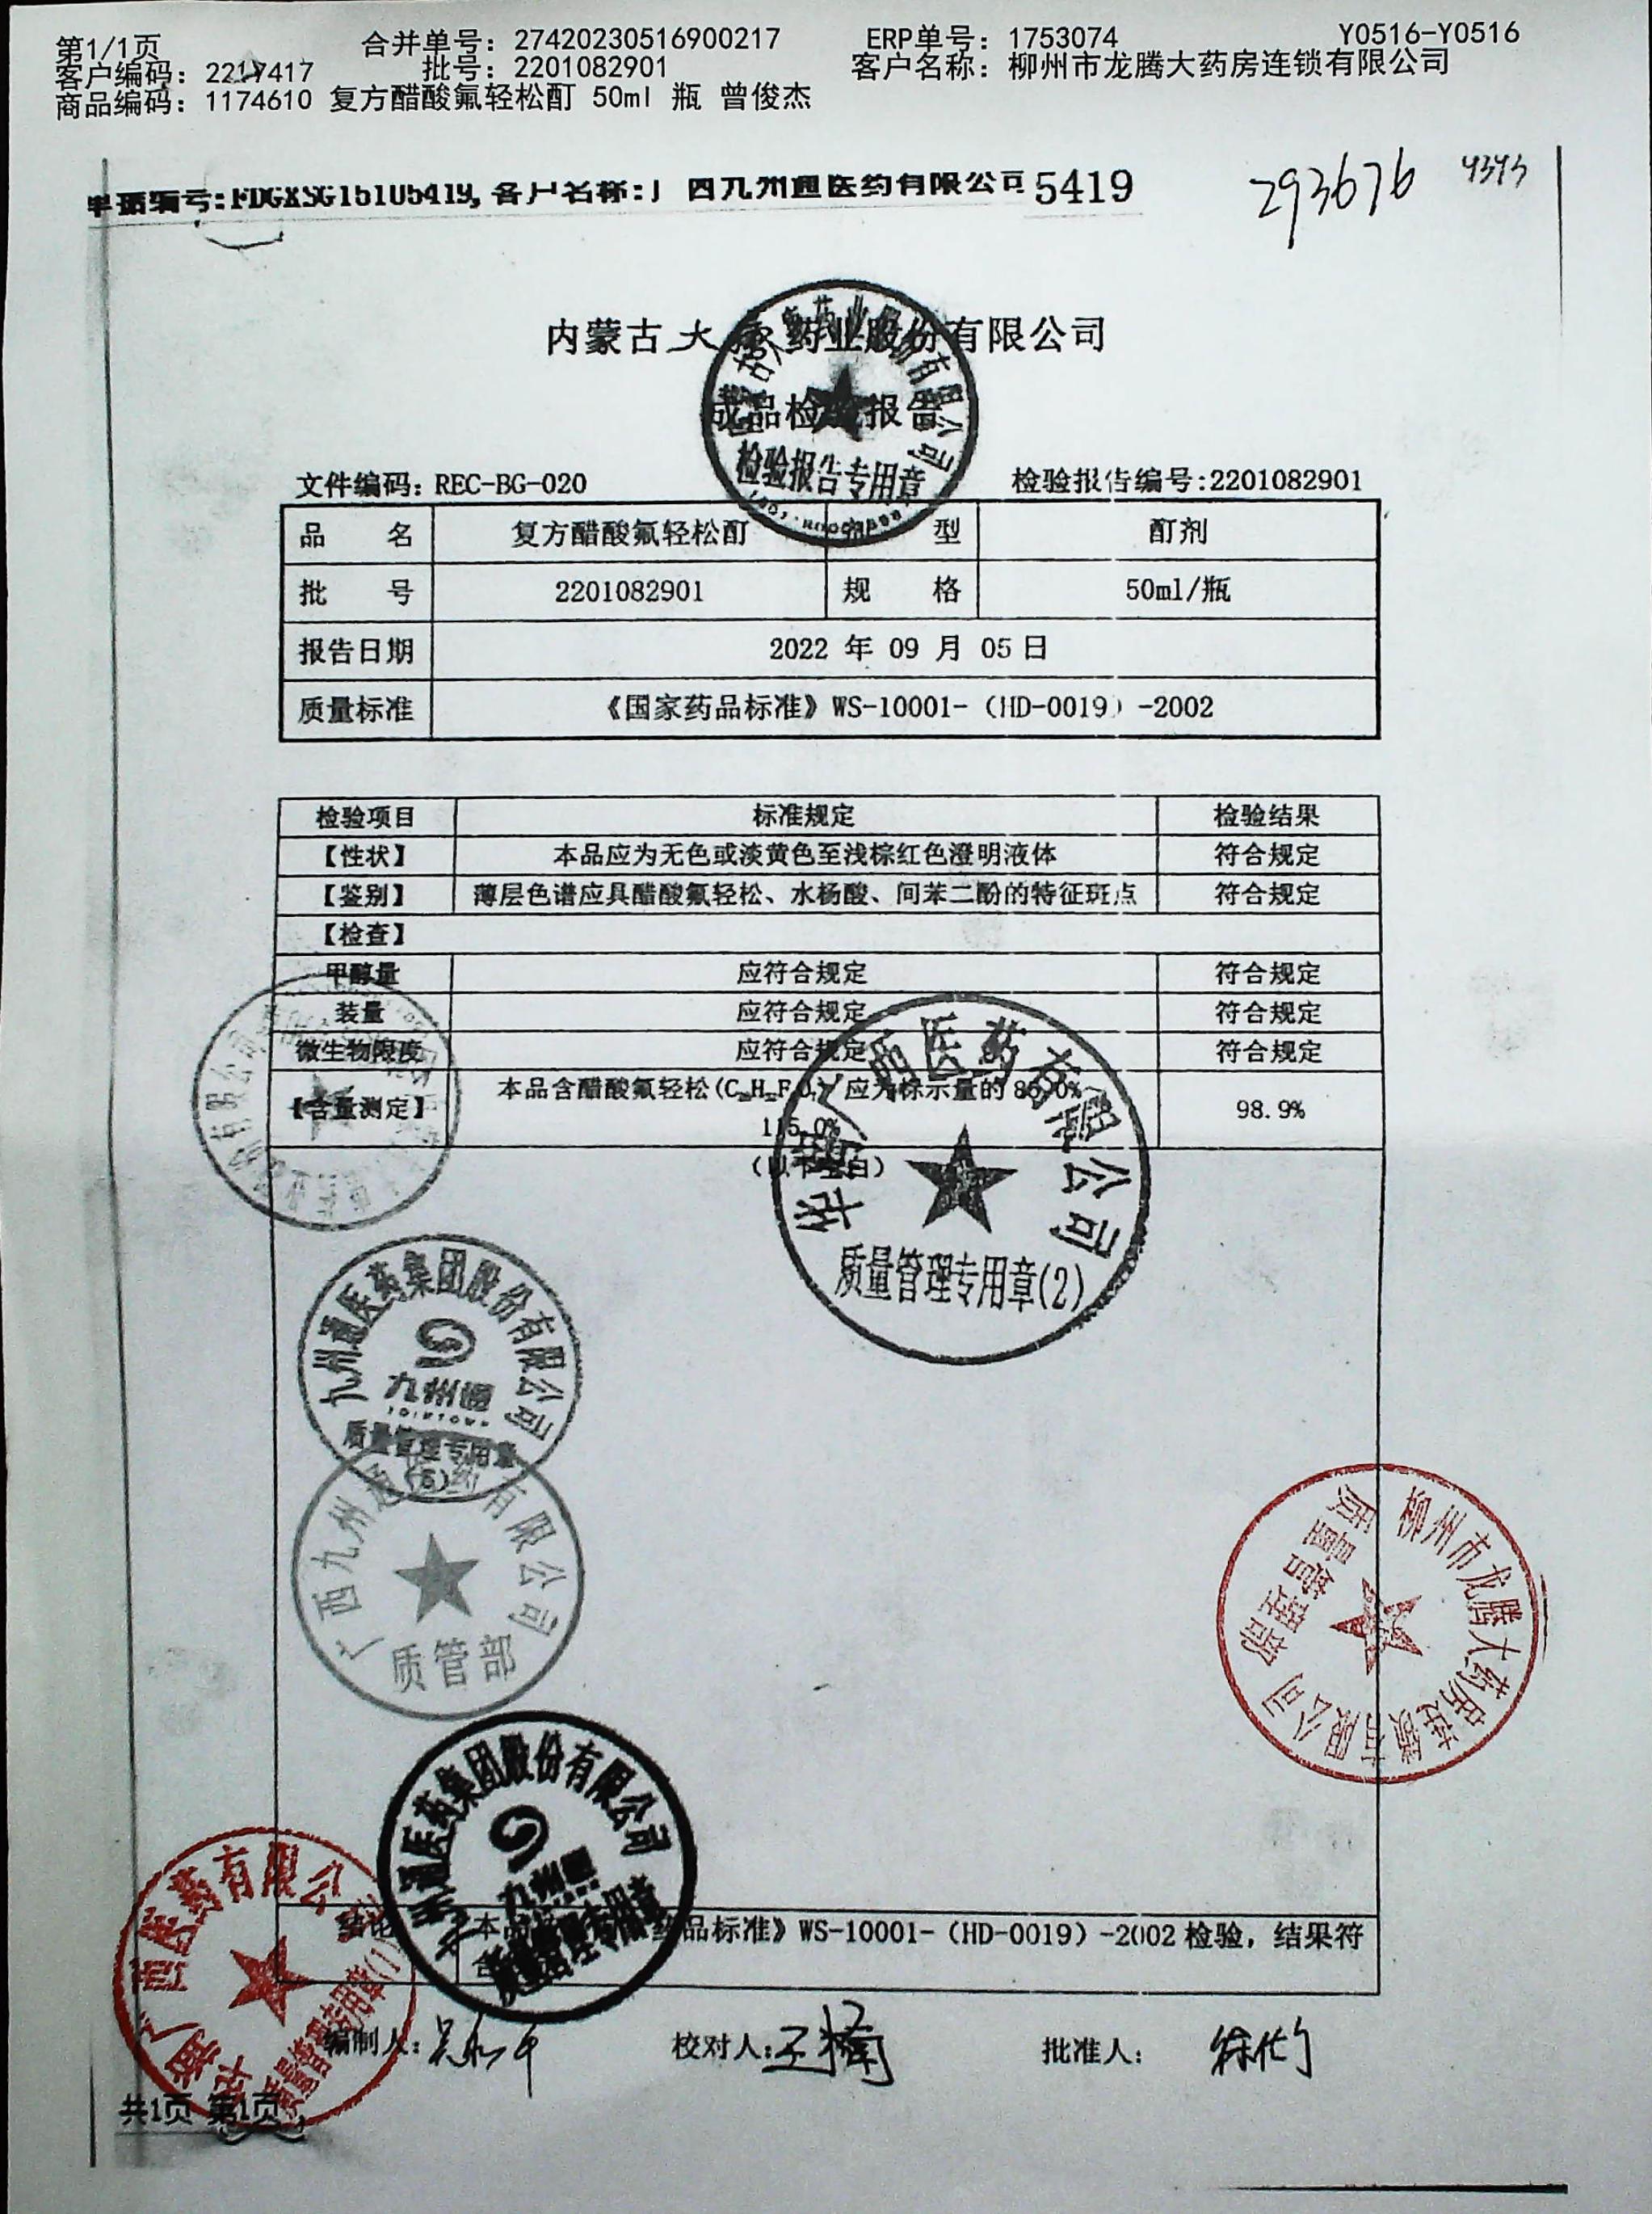 第1/1页 合并单号：27420230516900217 ERP单号：1753074 Y0516-Y0516
客户编码：2217417 批号：2201082901 客户名称：柳州市龙腾大药房连锁有限公司
商品编码：1174610 复方醋酸氟轻松酊 50ml 瓶 曾俊杰
单据编号:FDGXSG15105419,客户名称:广西九州通医药有限公司 5419
293676 4393
内蒙古大 药业股份有限公司
成品检验报告
检验报告专用章
文件编码：REC-BG-020 检验报告编号:2201082901
品 名 复方醋酸氟轻松酊 剂 型 酊剂
批 号 2201082901 规 格 50ml/瓶
报告日期 2022 年 09 月 05 日
质量标准 《国家药品标准》WS-10001-（HD-0019）-2002
检验项目 标准规定 检验结果
【性状】 本品应为无色或淡黄色至浅棕红色澄明液体 符合规定
【鉴别】 薄层色谱应具醋酸氟轻松、水杨酸、间苯二酚的特征斑点 符合规定
【检查】
甲醇量 应符合规定 符合规定
装量 应符合规定 符合规定
微生物限度 应符合规定 符合规定
【含量测定】 本品含醋酸氟轻松 应为标示量的 98.9%
115.0%
（以下空白）
广西医药有限公司
质量管理专用章(2)
九州通医药集团股份有限公司
九州通
JOINTOWN
质量管理专用章
(6)
广西九州通医药有限公司
质管部
柳州市龙腾大药房连锁有限公司
质量管理部
九州通医药集团股份有限公司
九州通
质量管理专用章
广西医药有限公司
结论 本品 药品标准》WS-10001-（HD-0019）-2002 检验，结果符
合
编制人： 校对人：王楠 批准人：
共1页 第1页